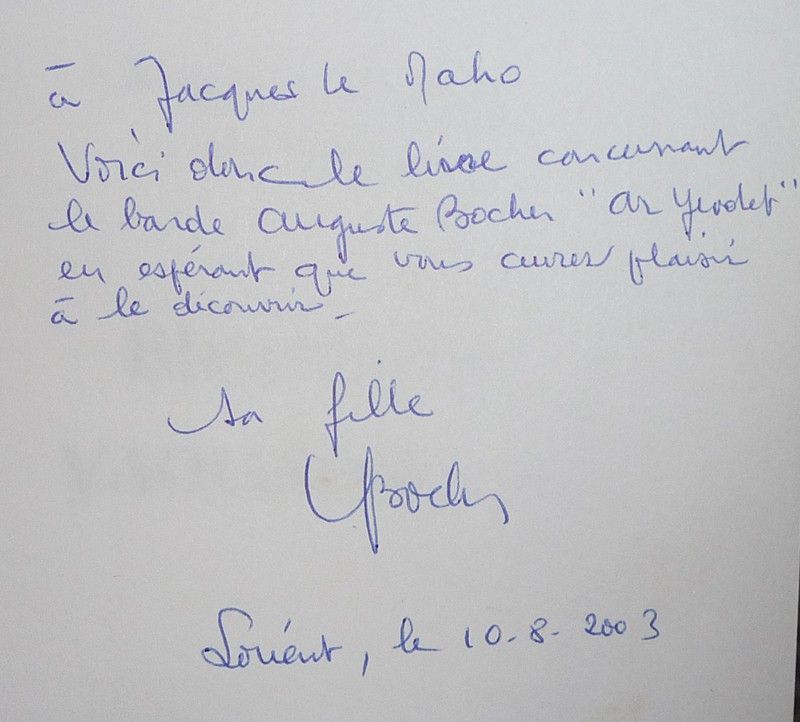 à Jacques le Maho
Voici donc le livre concernant
le barde Auguste Bocher "Ar Yeodet"
en espérant que vous aurez plaisir
à le découvrir -
sa fille
Bocher
Lorient, le 10-8-2003